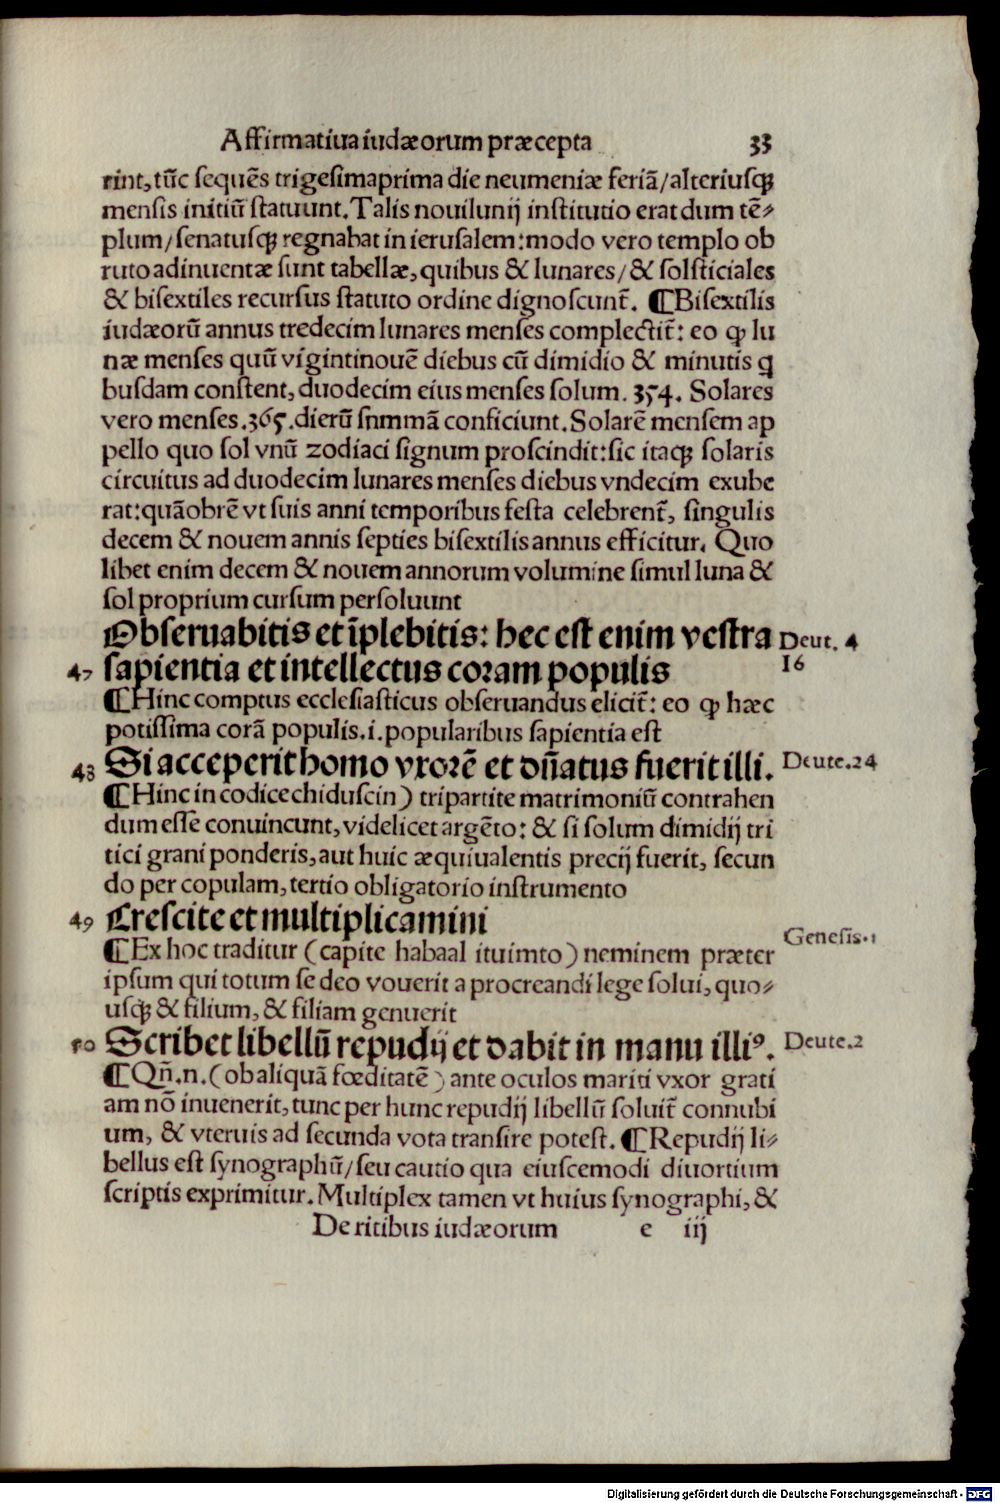 Affirmatiua iudæorum præcepta 33
rint, tūc sequēs trigesimaprima die neumeniæ feriā/alteriusqꝫ
mensis initiū statuunt. Talis nouilunij institutio erat dum tē⸗
plum/senatusqꝫ regnabat in ierusalem: modo vero templo ob
ruto adinuentæ sunt tabellæ, quibus & lunares/& solsticiales
& bisextiles recursus statuto ordine dignoscunt̃. ¶Bisextilis
iudæorū annus tredecim lunares menses complectit̃: eo ꝙ lu
næ menses quū vigintinouē diebus cū dimidio & minutis q
busdam constent, duodecim eius menses solum. 354. Solares
vero menses .365. dierū snmmā conficiunt. Solarē mensem ap
pello quo sol vnū zodiaci signum proscindit: sic itaqꝫ solaris
circuitus ad duodecim lunares menses diebus vndecim exube
rat: quāobrē vt suis anni temporibus festa celebrent̃, singulis
decem & nouem annis septies bisextilis annus efficitur. Quo
libet enim decem & nouem annorum volumine simul luna &
sol proprium cursum persoluunt
Obseruabitis et īplebitis: hec est enim vestra Deut. 4
16
47 sapientia et intellectus coram populis
¶Hinc comptus ecclesiasticus obseruandus elicit̃: eo ꝙ hæc
potissima corā populis .i. popularibus sapientia est
48 Si acceperit homo vxorē et dn̄atus fuerit illi. Deute.24
¶Hinc in codice chiduscin) tripartite matrimoniū contrahen
dum esse conuincunt, videlicet argēto: & si solum dimidij tri
tici grani ponderis, aut huic æquiualentis precij fuerit, secun
do per copulam, tertio obligatorio instrumento
49 Crescite et multiplicamini
Genesis.1
¶Ex hoc traditur (capite habaal ituimto) neminem præter
ipsum qui totum se deo vouerit a procreandi lege solui, quo⸗
usqꝫ & filium, & filiam genuerit
50 Scribet libellū repudij et dabit in manu illiꝰ. Deute.2
¶Qn̄.n.(ob aliquā fœditatē) ante oculos mariti vxor grati
am nō inuenerit, tunc per hunc repudij libellū soluit̃ connubi
um, & vteruis ad secunda vota transire potest. ¶Repudij li⸗
bellus est synographū/seu cautio qua eiuscemodi diuortium
scriptis exprimitur. Multiplex tamen vt huius synographi, &
De ritibus iudæorum e iij
Digitalisierung gefördert durch die Deutsche Forschungsgemeinschaft - DFG